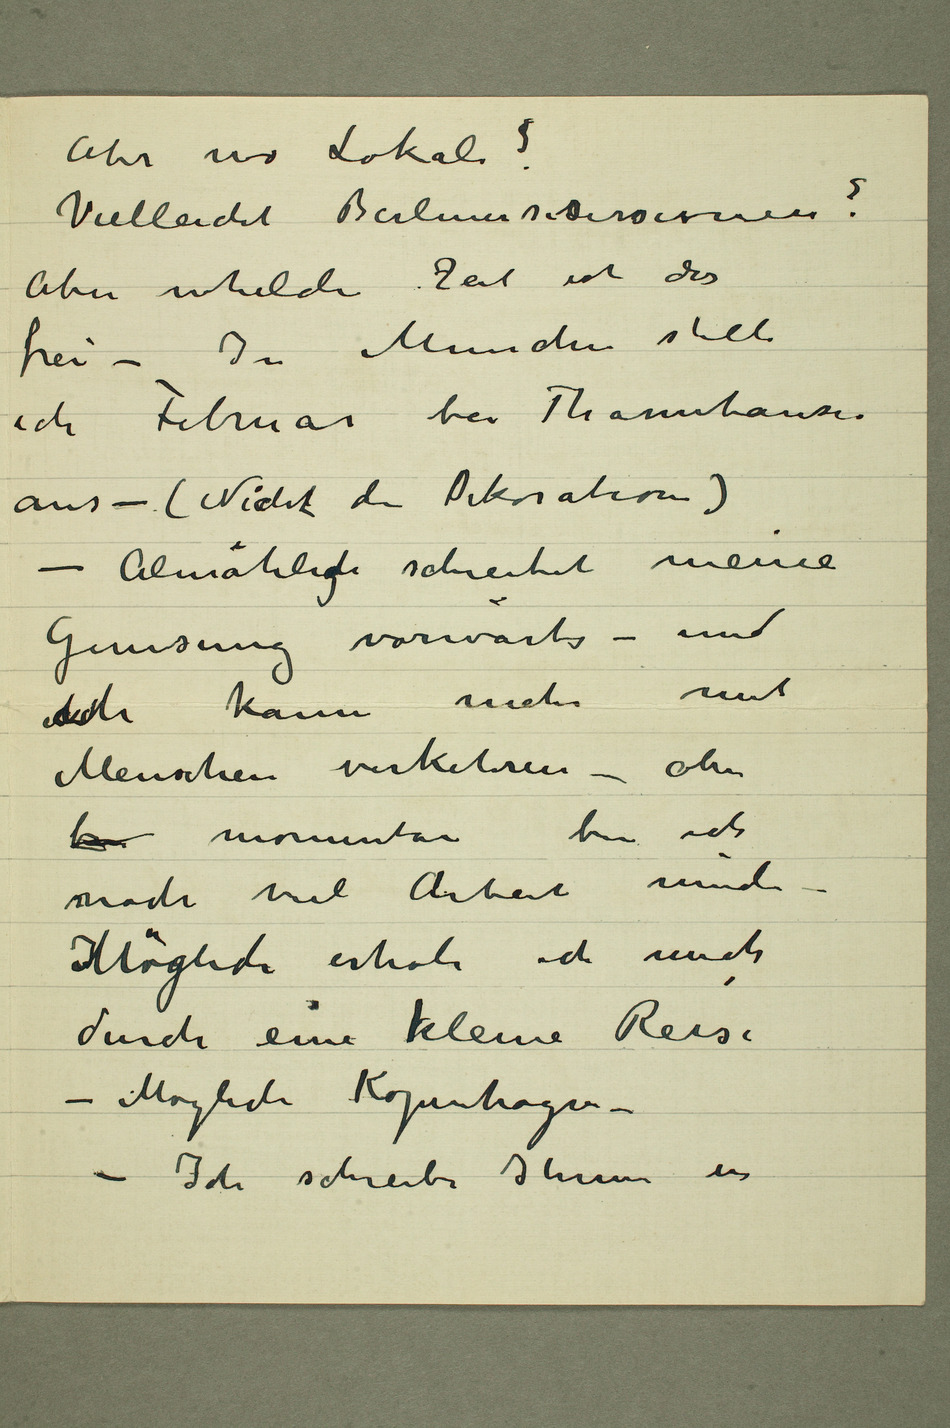 Aber wo Lokale?
Vielleicht Berlinersesessionen?
Aber whelche Zeit ist das
frei – In München stelle
ich Februar bei Thannhauser
aus – (Nicht die Dekoration)
– Almählich schreitet meine
Genesung vorwärts – und
ich kann mehr mit
Menschen verkehren – aber
bin momentan bin ich
noch viel Arbeit müde –
Möglich erhole ich mich
durch eine kleine Reise
– Möglich Kopenhagen –
– Ich schreibe Ihnen